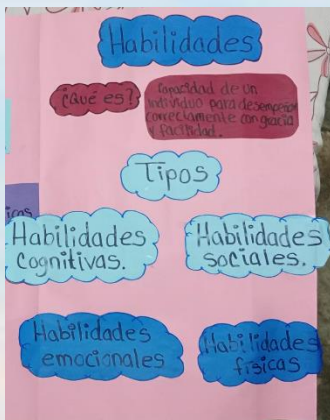 Habilidades
¿Qué es?
Capacidad de un
individuo para desempeñar
correctamente con gracia
y facilidad.
Tipos
Habilidades
cognitivas.
Habilidades
sociales.
Habilidades
emocionales
Habilidades
físicas